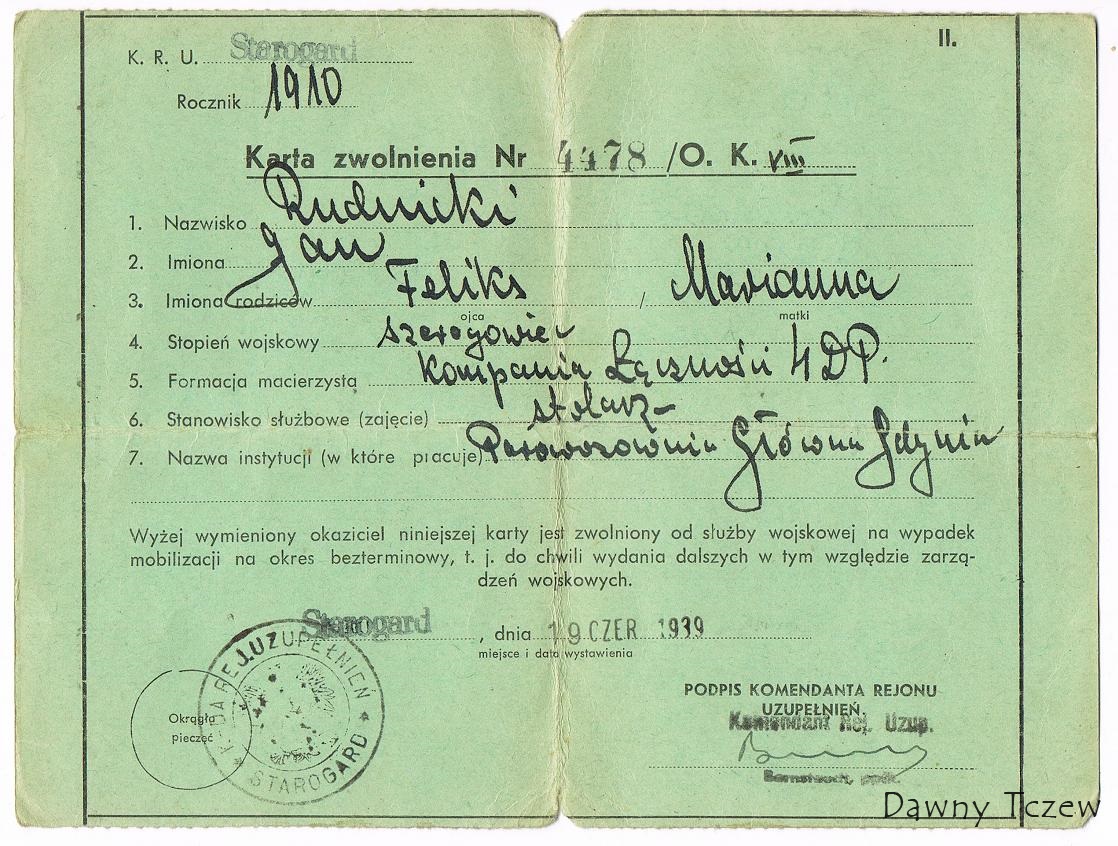 II.
K. R. U. Starogard
Rocznik 1910
Karta zwolnienia Nr 4478 /O. K. VIII
1. Nazwisko Rudnicki
2. Imiona Jan
3. Imiona rodziców Feliks / Marianna
ojca matki
4. Stopień wojskowy szeregowiec
5. Formacja macierzystą Kompania Łączności 4 DP.
6. Stanowisko służbowe (zajęcie) stolarz
7. Nazwa instytucji (w które pracuje) Parowozownia Główna Gdynia
Wyżej wymieniony okaziciel niniejszej karty jest zwolniony od służby wojskowej na wypadek
mobilizacji na okres bezterminowy, t. j. do chwili wydania dalszych w tym względzie zarzą-
dzeń wojskowych.
Starogard, dnia 19 CZER 1939
miejsce i data wystawienia
PODPIS KOMENDANTA REJONU
UZUPEŁNIEŃ.
Komendant Rej. Uzup.
ppłk.
Okrągła
pieczęć
REJ.UZUPEŁNIEŃ
STAROGARD
Dawny Tczew